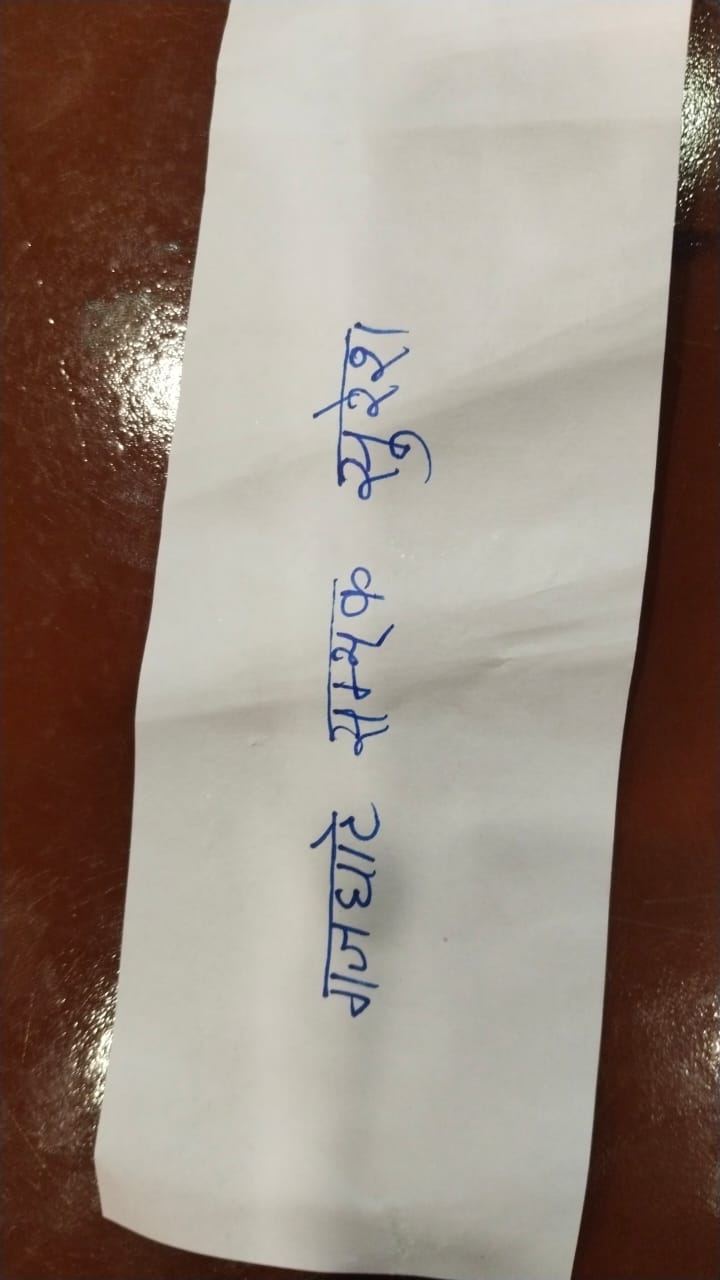 गजघाटे सम्यक सुरेश